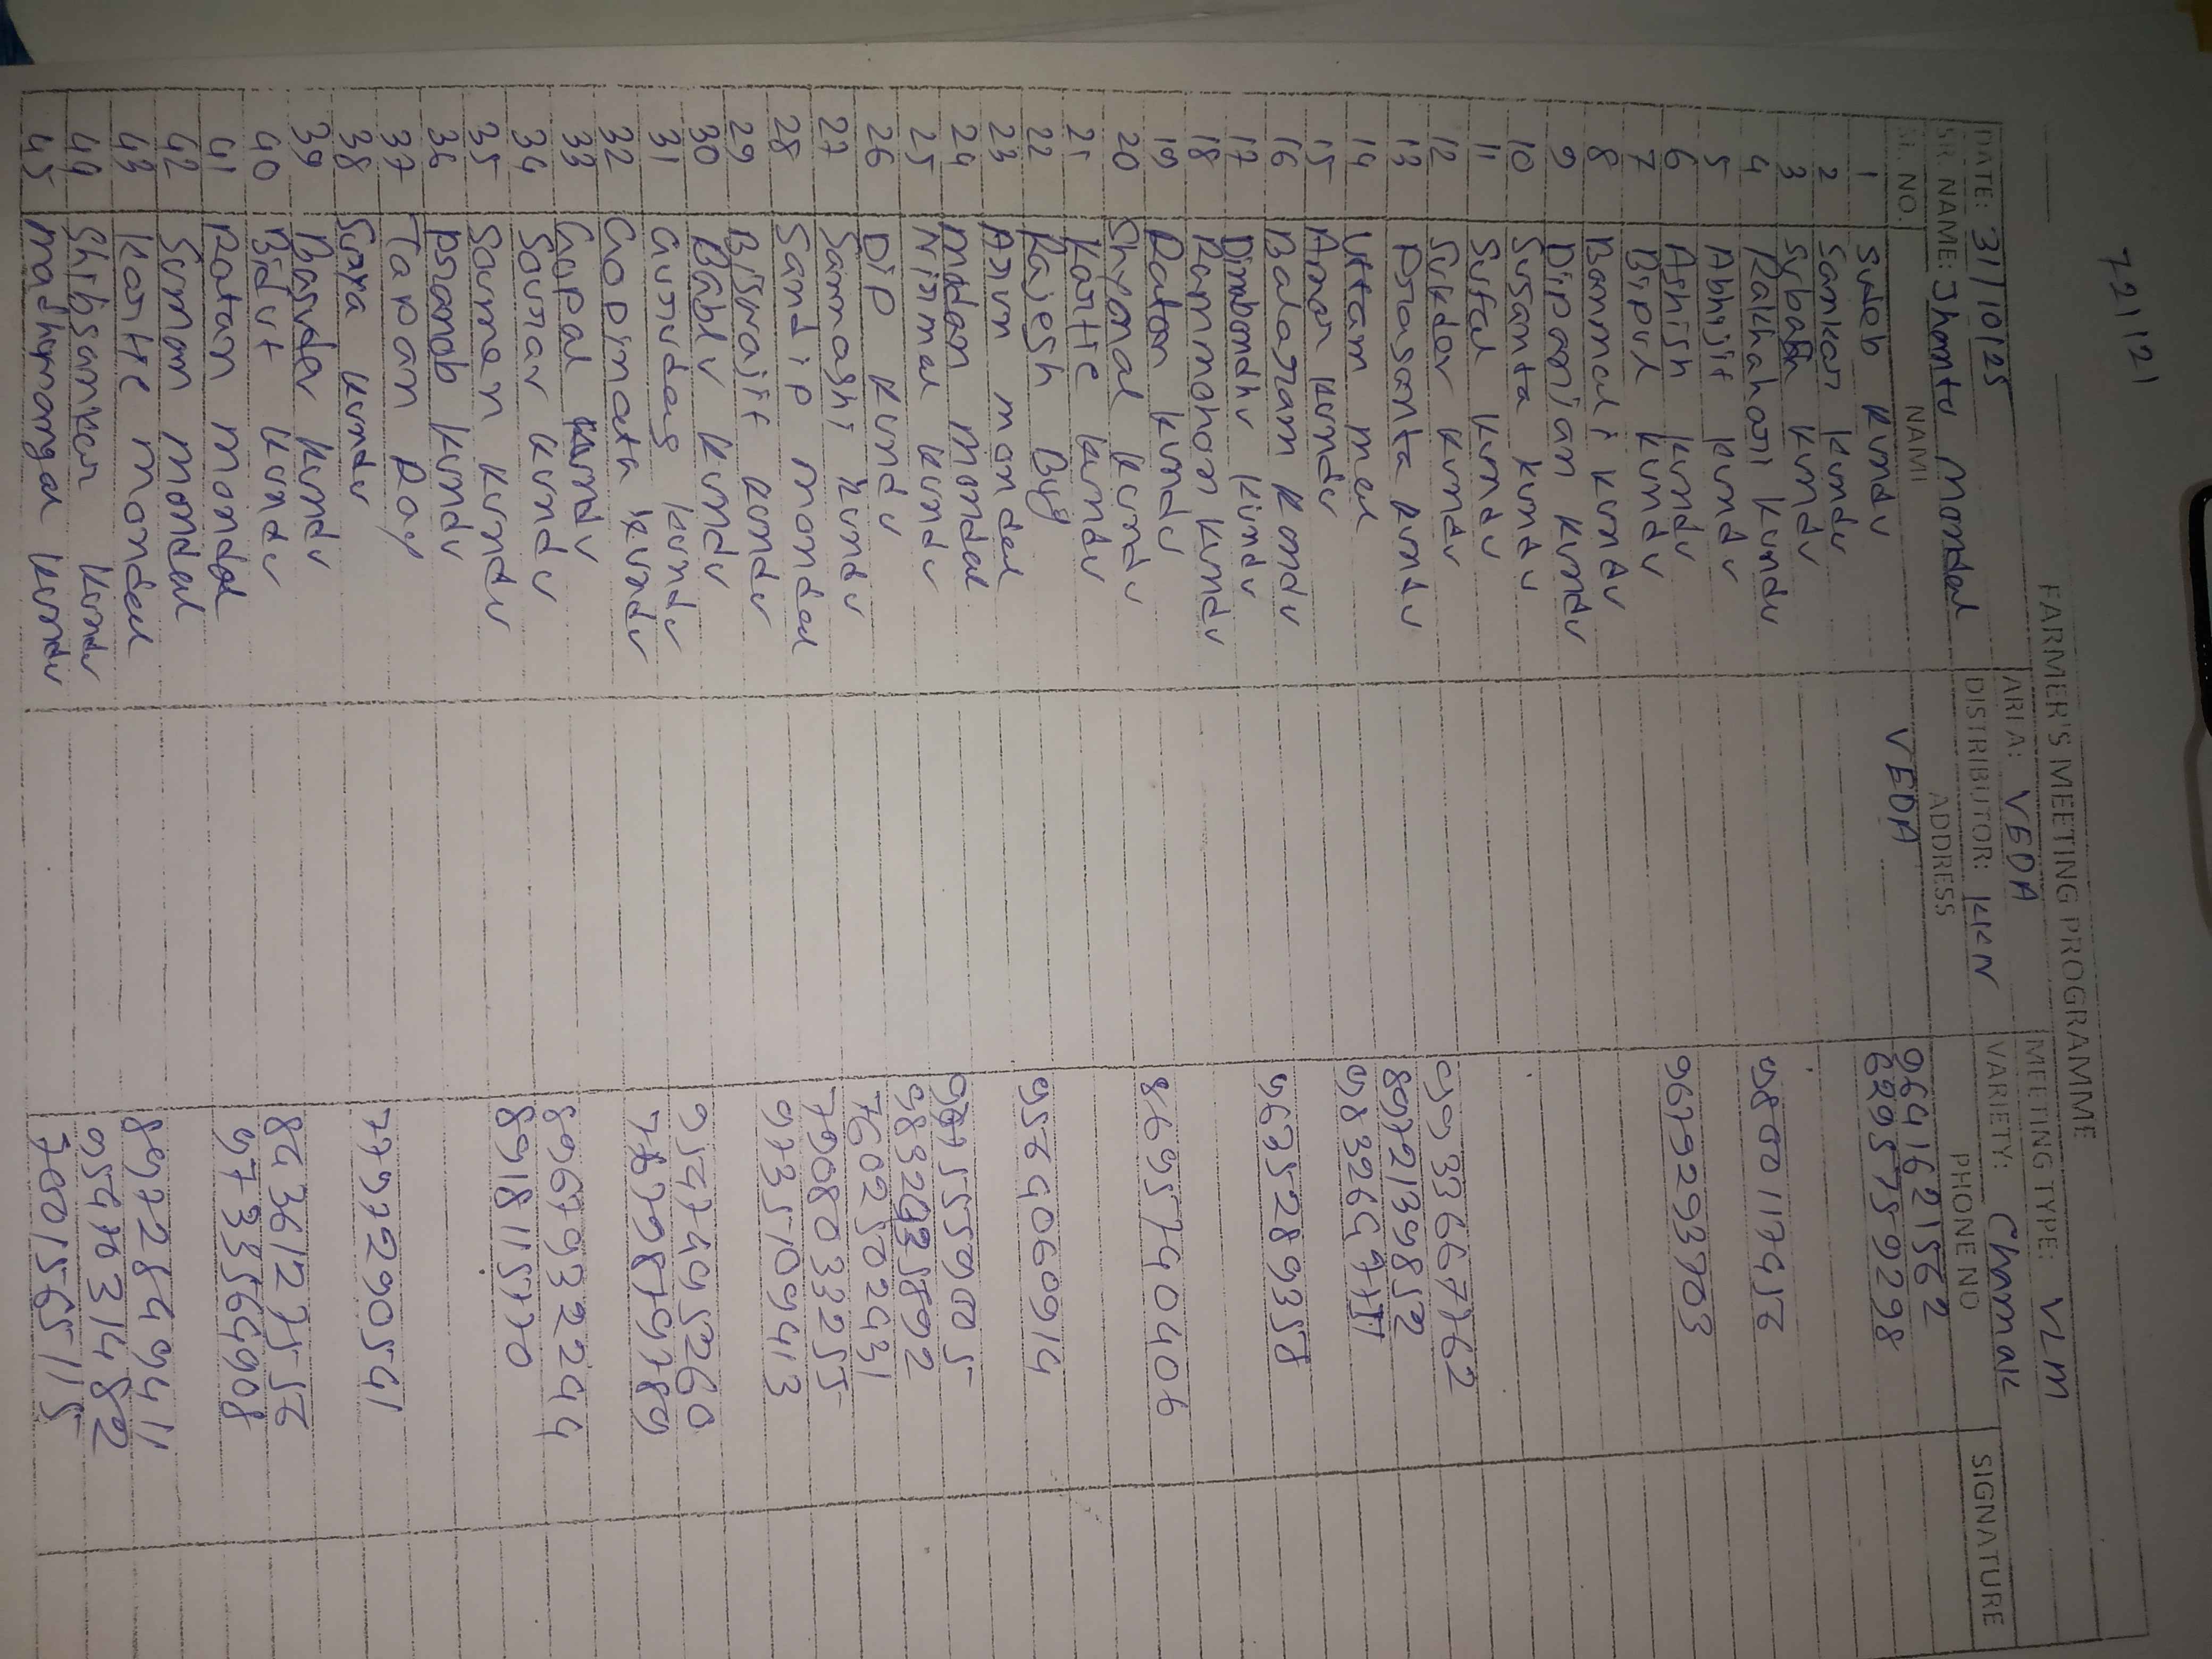 721121
FARMER'S MEETING PROGRAMME
DATE: 31/10/25 AREA: VEDA MEETING TYPE: VLM
SR. NAME: Jhantu Mondal DISTRIBUTOR: KKN VARIETY: Chamak
SL. NO. NAME ADDRESS PHONE NO SIGNATURE
9641621562
1 Sudeb Kundu VEDA 6295759298
2 Sankar Kundu
3 Kundu
4 Rakhahari Kundu 9800117456
5 Abhijit Kundu
6 Ashish Kundu 9679293703
7 Bipul Kundu
8 Kundu
9 Dipanjan Kundu
10 Susanta Kundu
11 Sufal Kundu
12 Sukdev Kundu 9933667762
13 Prasanta Kundu 8972139852
14 Uttam Mal
15 Amar Kundu
16 Balaram Kundu 9635289358
17 Dinabandhu Kundu
18 Rammohan Kundu
19 Ratan Kundu 8695740406
20 Shyamal Kundu
21 Kartic Kundu
22 Rajesh 9564060914
23 Arun Mondal
24 Madan Mondal
25 Nirmal Kundu
26 Dip Kundu 7602502431
27 Kundu 7908033255
28 Sandip Mondal 9735109413
29 Biswajit Kundu
30 Bablu Kundu 9547495260
31 Gurudas Kundu
32 Gopinath Kundu
33 Gopal Kundu 8967932244
34 Sourav Kundu 8918115770
35 Soumen Kundu
36 Pranab Kundu
37 Tapan Roy 7797290541
38 Kundu
39 Kundu 8436127556
40 Bidut Kundu 9735564908
41 Ratan Mondal
42 Suman Mondal 8972849411
43 Kartic Mondal
44 Shibsankar Kundu
45 Madhumangal Kundu 7001565115